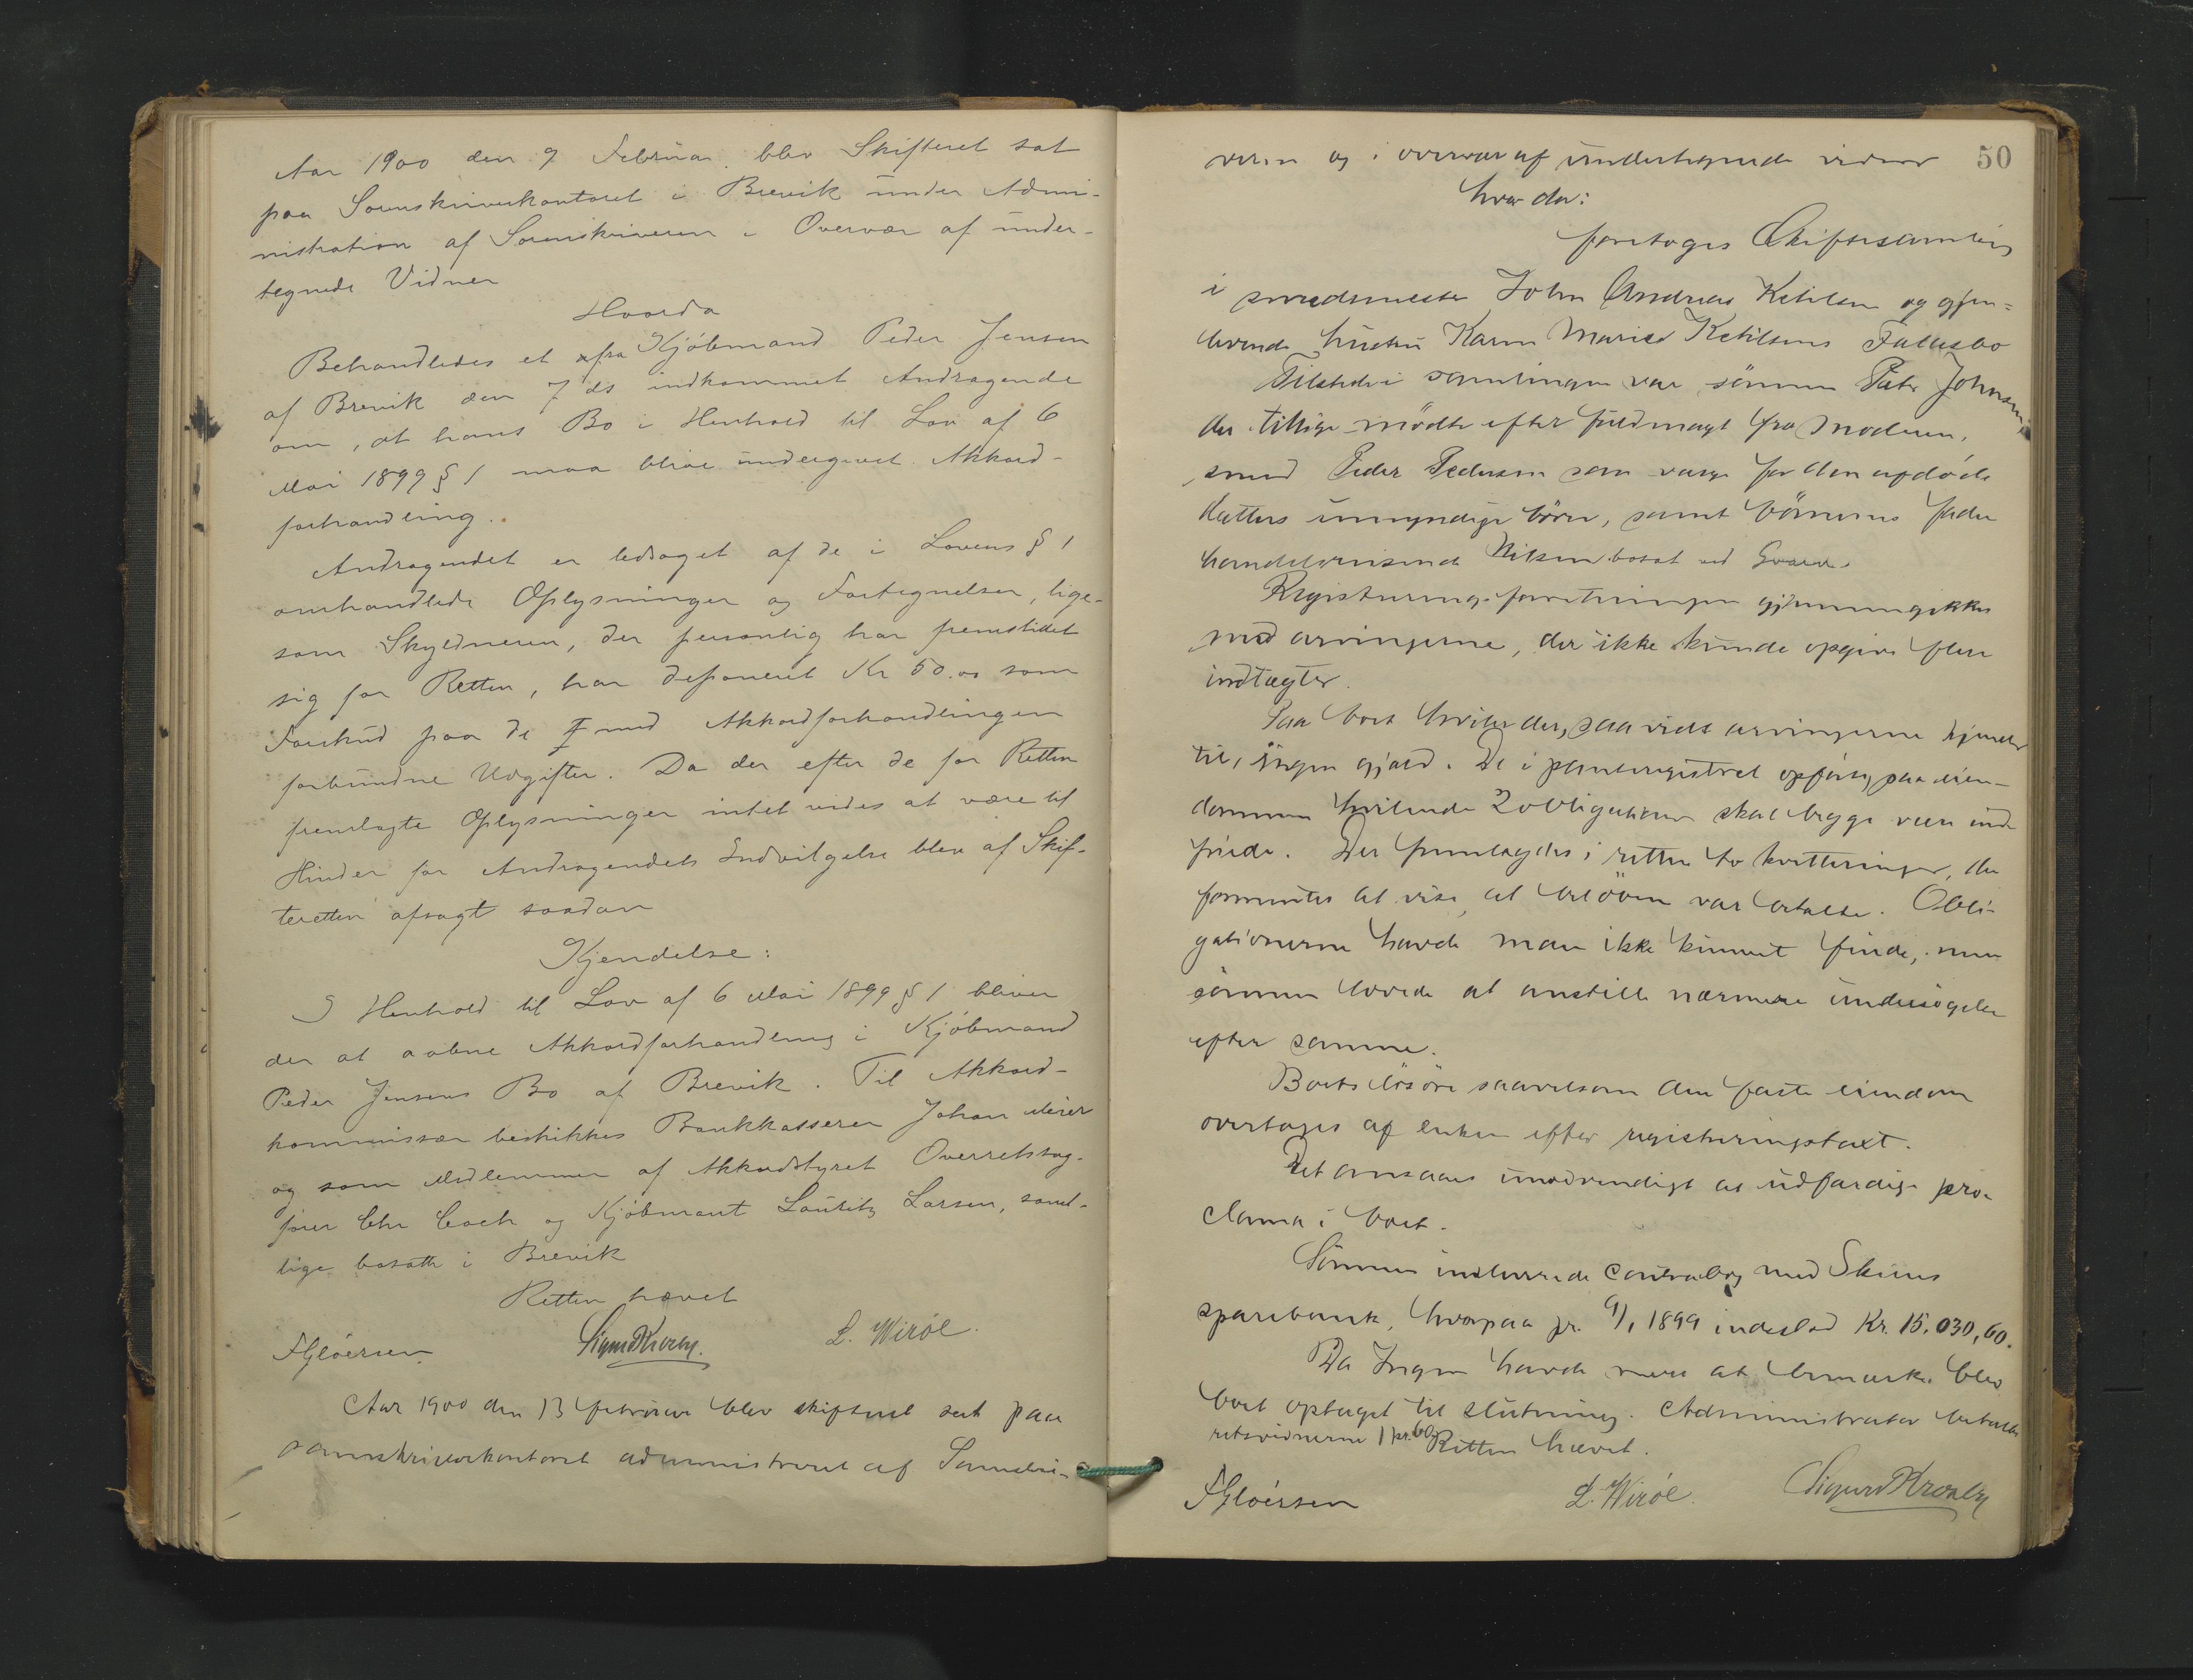 Aar 1900 den 9 Februar blev Skifteret sat
paa Sorenskriverkontoret i Brevik under Admi-
nistration af Sorenskriveren i Overvær af under-
tegnede Vidner
Hvorda
Behandledes et fra Kjøbmand Peder Jensen
af Brevik den 7 ds indkommet Andragende
om, at hans Bo i Henhold til Lov af 6
Mai 1899 § 1 maa blive undergivet Akkord-
forhandling.
Andragendet er ledsaget af de i Lovens § 1
omhandlede Oplysninger og Fortegnelser, lige-
som Skyldneren, der personlig har fremstillet
sig for Retten, har deponeret Kr 50.00 som
Forskud paa de med Akkordforhandlingen
forbundne Udgifter. Da der efter de for Retten
fremlagte Oplysninger intet vides at være til
Hinder for Andragendets Indvilgelse blev af Skif-
teretten afsagt saadan
Kjendelse:
I Henhold til Lov af 6 Mai 1899 § 1 bliver
der at aabne Akkordforhandling i Kjøbmand
Peder Jensens Bo af Brevik. Til Akkord-
kommissær beskikkes Bankkasserer Johan Meier
og som Medlemmer af Akkordstyret Overretssag-
fører Chr Coch og Kjøbmant Lauritz Larsen, samt-
lige bosatte i Brevik
Retten hævet
FGløersen Sigurd Kroely. L. Wirøe.
Aar 1900 den 13 februar blev skifteret sat paa
sorenskriverkontoret administreret af Sorenskri-
50
veren og i overvær af undertegnede vidner
hvor da:
foretoges Skiftesamling
i smedmester John Andreas Ketilsen og gjen-
levende hustru Karen Marie Ketilsens Fællesbo
Tilstede i samlingen var sönnen Peter Johnsen,
der tillige mödte efter fuldmagt fra Moderen,
smed Peder Pedersen som verge for den afdöde
datters umyndige börn, samt börnenes fader
handelsreisende Nilsen bosat ved
Registreringsforretningen gjennemgikkes
med arvingerne, der ikke kunde opgive flere
indtægter.
Paa boet hviler der, saavidt arvingerne kjender
til, ingen gjæld. De i panteregistret opförte, paa eien-
dommen hvilende 2 obligationer skal begge være ind-
friede. Der fremlagdes i retten to kvitteringer, der
formentes at vise, at belöbene var betalte. Obli-
gationerne havde man ikke kunnet finde, men
sönnen lovede at anstille nærmere undersögelse
efter samme.
Boets lösöre saavelsom den faste eiendom
overtages af enken efter registreringstaxt.
Det ansaaes unödvendigt at udfærdige pro-
clama i boet.
Sönnen indleverede contrabog med Skiens
sparebank, hvorpaa pr. 9/1 1899 indestod Kr. 15.030,60.
Da Ingen havde mere at bemærke blev
boet optaget til slutning. Administrator betalte
retsvidnerne 1 kr. 60 Retten hævet.
FGløersen L. Wirøe. Sigurd Kroely